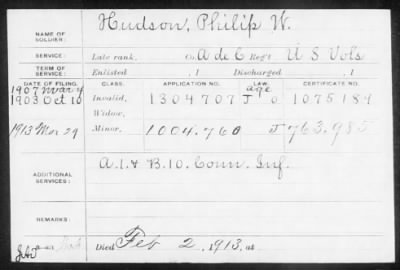 NAME OF SOLDIER: Hudson, Philip W.
SERVICE: Late rank, Co. A de C Reg't U S Vols
TERM OF SERVICE: Enlisted , 1 Discharged , 1
DATE OF FILING. CLASS. APPLICATION NO. LAW. CERTIFICATE NO.
1907 Mar 4 age
1903 Oct 10 Invalid, 1304707 J O 1075184
Widow,
1913 Mar 29 Minor, 1004.760 J 763.985
ADDITIONAL SERVICES: A. 1. & B. 10. Conn. Inf.
REMARKS:
Died Feb 2, 1913, at